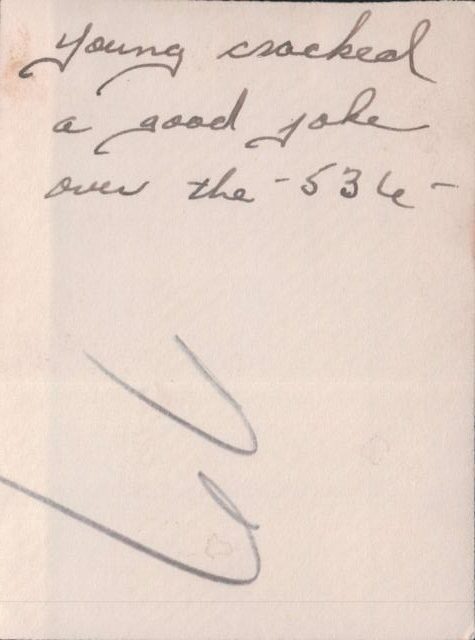 young cracked
a good joke
over the -536-